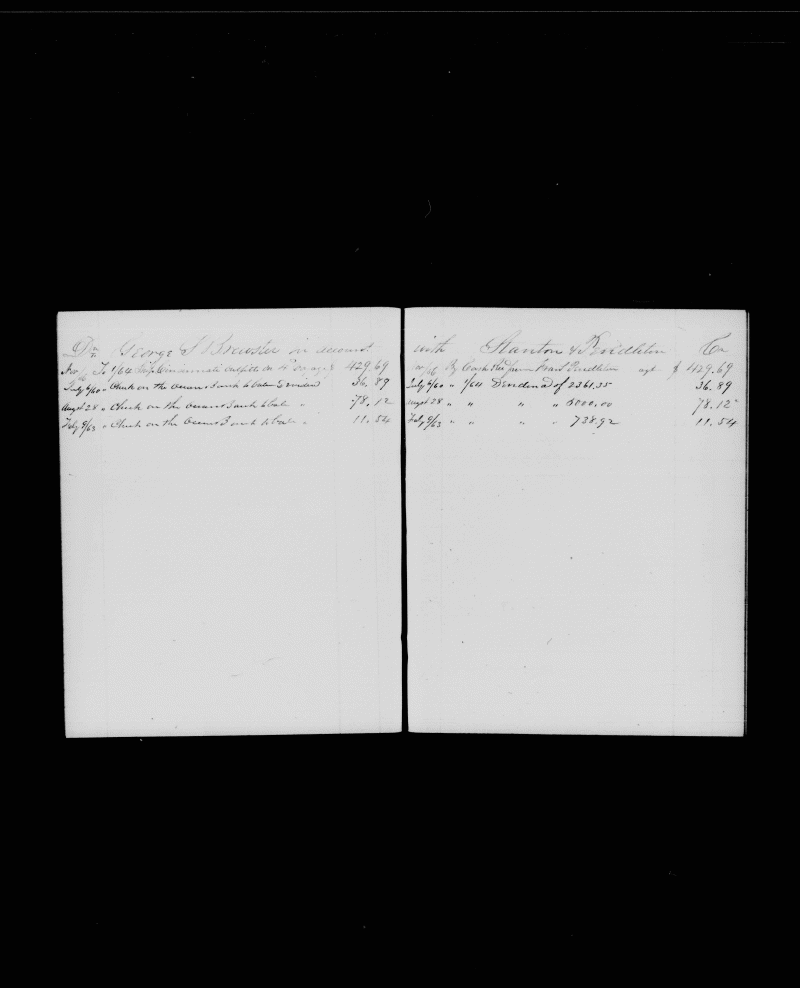 Dr George S Brewster in account
To 1/64 Ship Cincinnati Outfits on 4 voyage 429.69
July 6/60 " Check on the Ocean Bank to bal Dividend 36.89
Augst 28 " Check on the Ocean Bank to bal " 78.12
Feby 9/63 " Check on the Ocean Bank to bal " 11.54
with Stanton & Pendleton Cr
By Cash Recd from Pendleton $ 429.69
July 6/60 " 1/64 Dividend of 2361.35 36.89
Augst 28 " " " " 5000.00 78.12
Feby 9/63 " " " " 738.92 11.54